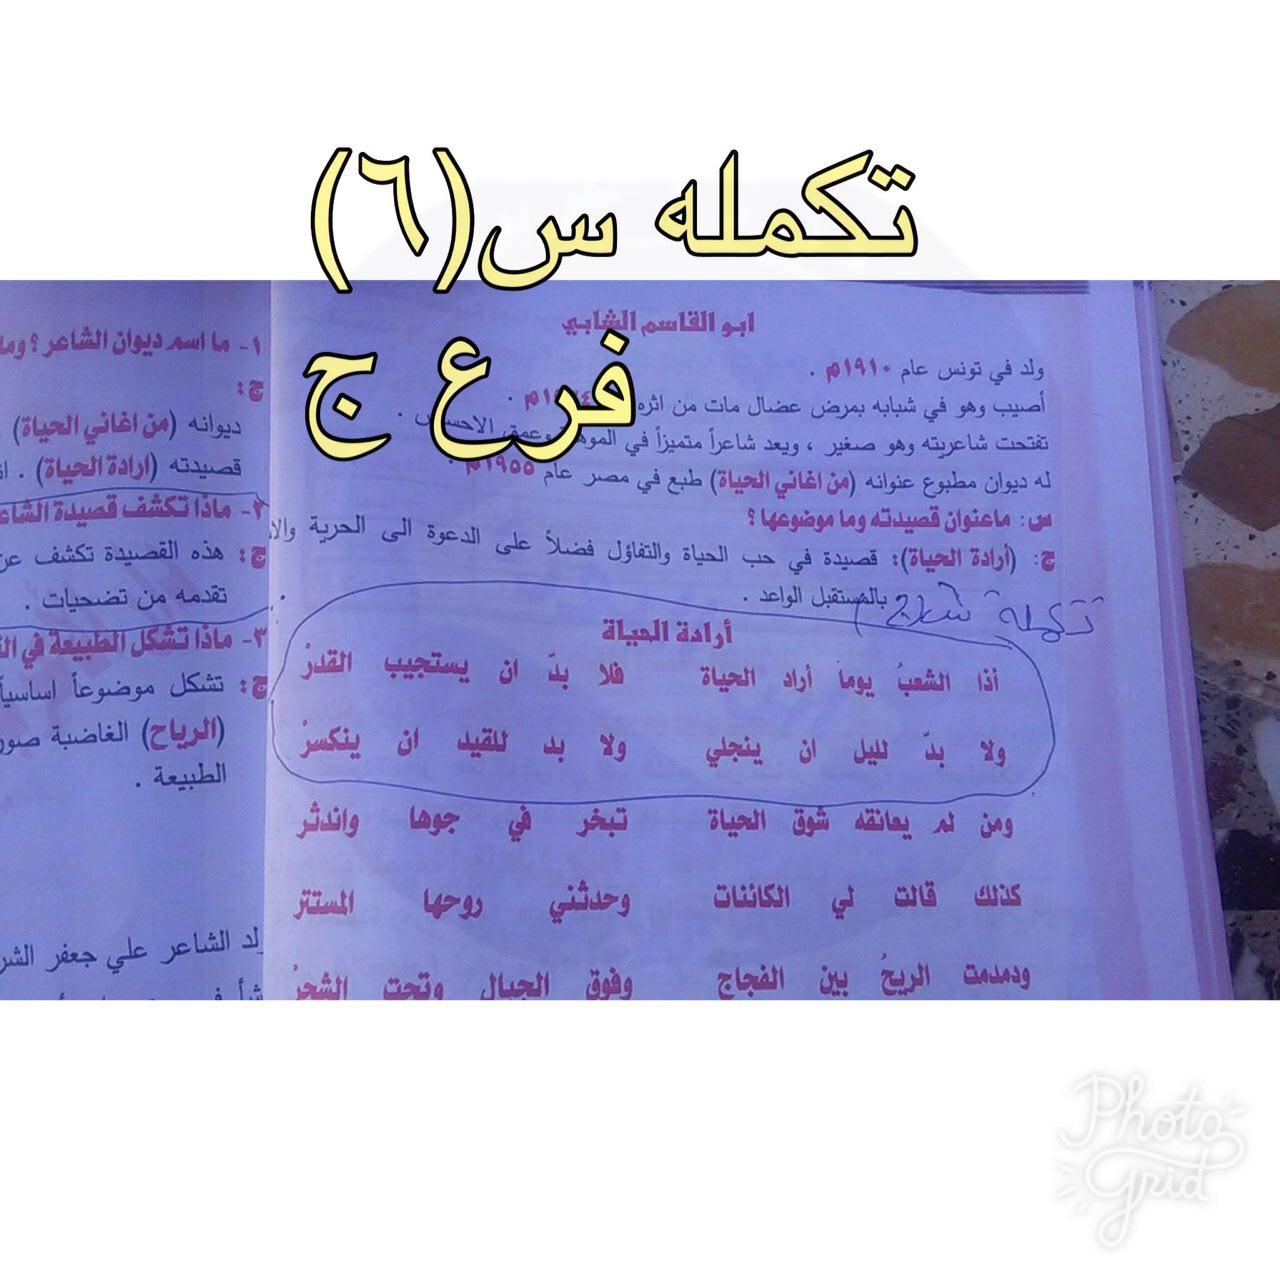 تكمله س(٦)
فرع ج
ابو القاسم الشابي
ولد في تونس عام ١٩١٠م .
أصيب وهو في شبابه بمرض عضال مات من اثره
تفتحت شاعريته وهو صغير ، ويعد شاعراً متميزاً في وعمق الاحساس .
له ديوان مطبوع عنوانه (من اغاني الحياة) طبع في مصر عام ١٩٥٥م .
س: ماعنوان قصيدته وما موضوعها ؟
ج: (أرادة الحياة): قصيدة في حب الحياة والتفاؤل فضلاً على الدعوة الى الحرية
بالمستقبل الواعد .
تكملة
أرادة الحياة
أذا الشعبُ يوماً أراد الحياة فلا بدّ ان يستجيب القدرْ
ولا بدّ لليل ان ينجلي ولا بد للقيد ان ينكسرْ
ومن لم يعانقه شوق الحياة تبخر في جوها واندثر
كذلك قالت لي الكائنات وحدثني روحها المستتر
ودمدمت الريحُ بين الفجاج وفوق الجبال وتحت الشجرْ
١- ما اسم ديوان الشاعر ؟
ج:
ديوانه (من اغاني الحياة)
قصيدته (ارادة الحياة) .
٢- ماذا تكشف قصيدة
ج: هذه القصيدة تكشف
تقدمه من تضحيات .
٣- ماذا تشكل الطبيعة في
ج: تشكل موضوعاً اساسياً
(الرياح) الغاضبة
الطبيعة .
الشاعر علي جعفر
Photo
Grid